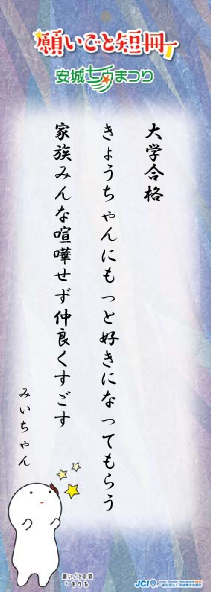 願いごと短冊
安城七夕まつり
大学合格
きょうちゃんにもっと好きになってもらう
家族みんな喧嘩せず仲良くすごす
みいちゃん
JCI